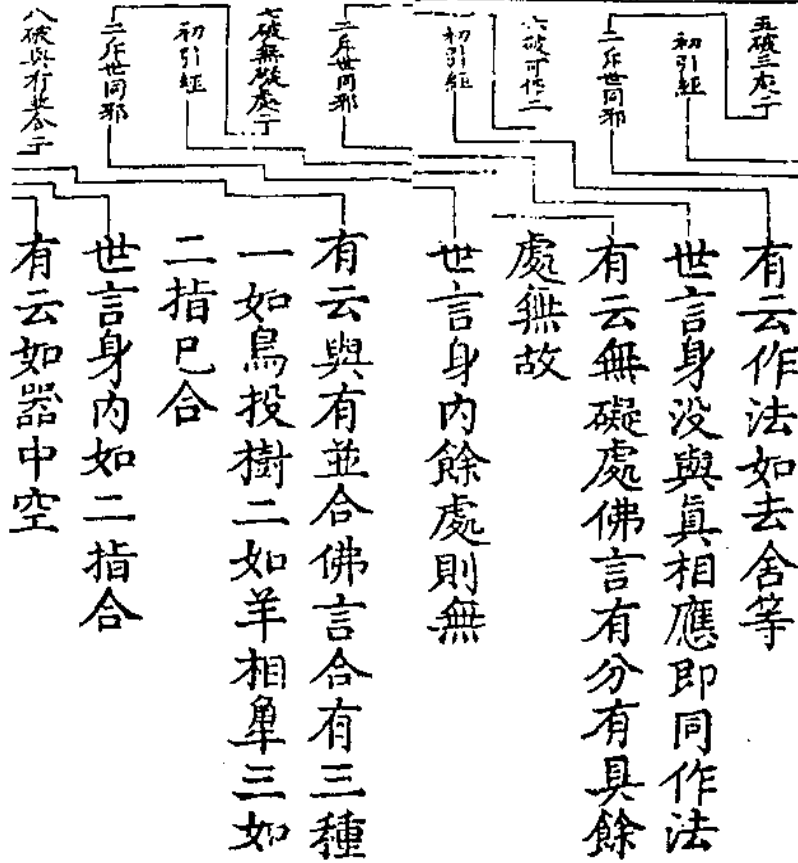 五破三處二
初引經
二斥世同邪
六破可作二
初引經
二斥世同邪
七破無礙處二
初引經
二斥世同邪
八破與有並合二
有云作法如去舍等
世言身没與眞相應即同作法
有云無礙處佛言有分有具餘
處無故
世言身内餘處則無
有云與有並合佛言合有三種
一如鳥投樹二如羊相𠦜三如
二指巳合
世言身内如二指合
有云如器中空